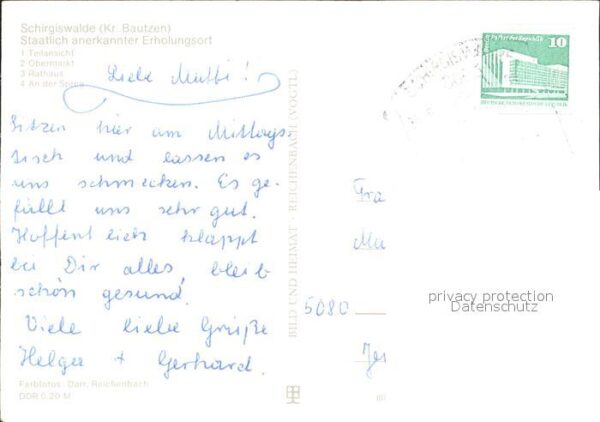 Schirgiswalde (Kr. Bautzen)
Staatlich anerkannter Erholungsort
1 Teilansicht
2 Obermarkt
3 Rathaus
4 An der Spree
Liebe Mutti!
Sitzen hier am Mittags
tisch und lassen es
uns schmecken. Es ge-
fällt uns sehr gut.
Hoffentlich klappt
bei Dir alles, bleib
schön gesund.
Viele liebe Grüße
Helga + Gerhard.
Farbfotos: Darr, Reichenbach
DDR 0,20 M
BILD UND HEIMAT REICHENBACH (VOGTL)
10
Fra
Mu
5080
Jer
privacy protection
Datenschutz